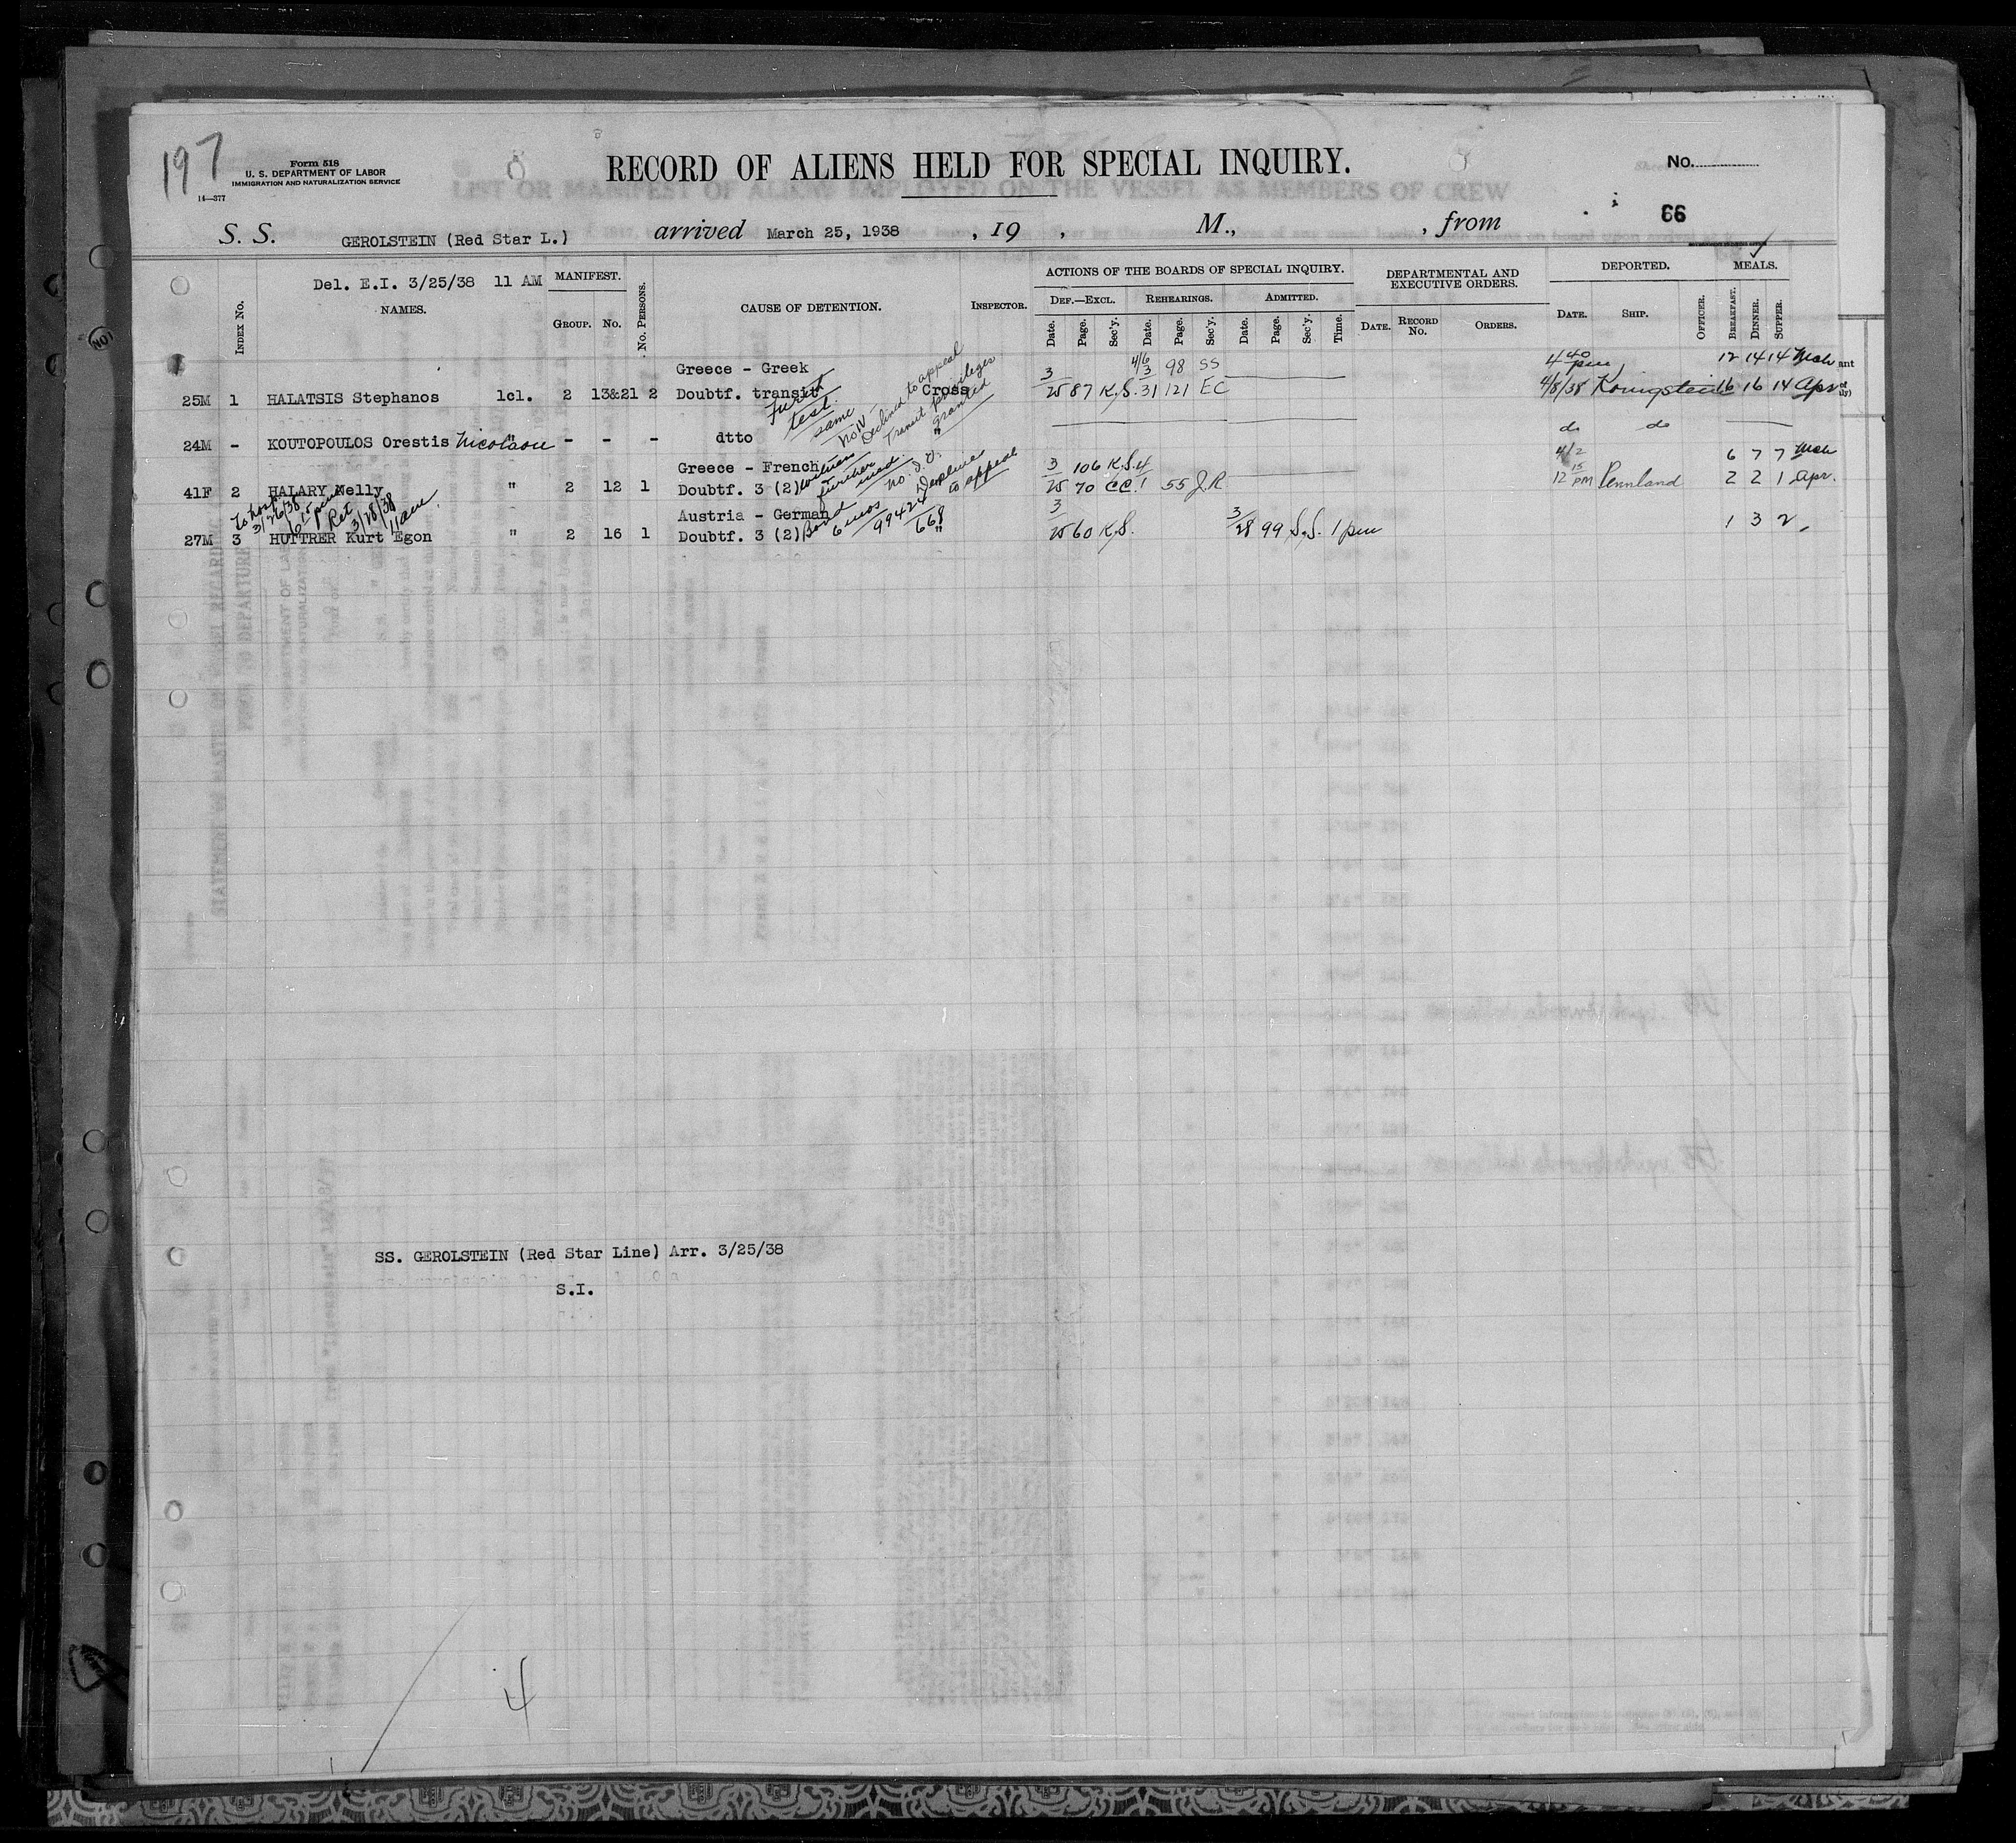 197
Form 518
U. S. DEPARTMENT OF LABOR
IMMIGRATION AND NATURALIZATION SERVICE
14—377
RECORD OF ALIENS HELD FOR SPECIAL INQUIRY.
No.
66
S. S. GEROLSTEIN (Red Star L.) arrived March 25, 1938 , 19 , M., , from
Del. E.I. 3/25/38 11 AM
INDEX No. NAMES. MANIFEST. GROUP. No. No. PERSONS. CAUSE OF DETENTION. INSPECTOR.
ACTIONS OF THE BOARDS OF SPECIAL INQUIRY.
DEF.—EXCL. REHEARINGS. ADMITTED.
Date. Page. Sec'y. Date. Page. Sec'y. Date. Page. Sec'y. Time.
DEPARTMENTAL AND EXECUTIVE ORDERS.
DATE. RECORD No. ORDERS.
DEPORTED.
DATE. SHIP. OFFICER.
MEALS.
BREAKFAST. DINNER. SUPPER.
Greece - Greek 4/6 3 98 SS 4 40 pm 12 14 14 Mch
25M 1 HALATSIS Stephanos 1cl. 2 13&21 2 Doubtf. transit Cross 3/25 87 K.S. 31 121 EC 4/8/38 Konigstein 16 16 14 Apr
test. same Declined to appeal Transit privileges granted
24M - KOUTOPOULOS Orestis Nicolaou " - - - dtto " do do
Greece - French 3 106 K.S. 4 4/2 6 7 7 Mch
41F 2 HALARY Nelly " 2 12 1 Doubtf. 3 (2) 25 70 CC. 1 55 J.R 12 15 PM Pennland 2 2 1 Apr.
witness further no to appeal
To hosp 3/26/38 Ret 3/28/38 11am
Austria - German 3 3 1 3 2
27M 3 HUTTRER Kurt Egon " 2 16 1 Doubtf. 3 (2) " 25 60 K.S. 28 99 S.S. 1 pm
Bond 6 mos 99424/668
SS. GEROLSTEIN (Red Star Line) Arr. 3/25/38
S.I.
4